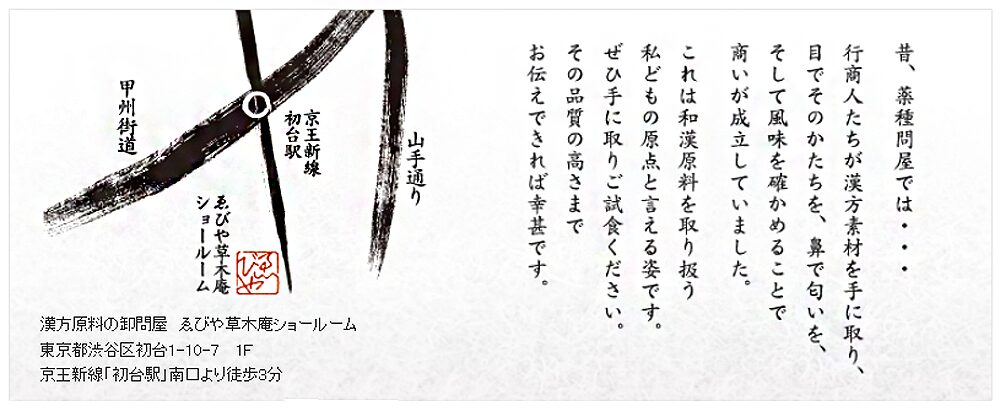 昔、薬種問屋では・・・
行商人たちが漢方素材を手に取り、
目でそのかたちを、鼻で匂いを、
そして風味を確かめることで
商いが成立していました。
これは和漢原料を取り扱う
私どもの原点と言える姿です。
ぜひ手に取りご試食ください。
その品質の高さまで
お伝えできれば幸甚です。
山手通り
京王新線
初台駅
甲州街道
ゑびや草木庵
ショールーム
ゑびや
漢方原料の卸問屋 ゑびや草木庵ショールーム
東京都渋谷区初台1-10-7 1F
京王新線「初台駅」南口より徒歩3分